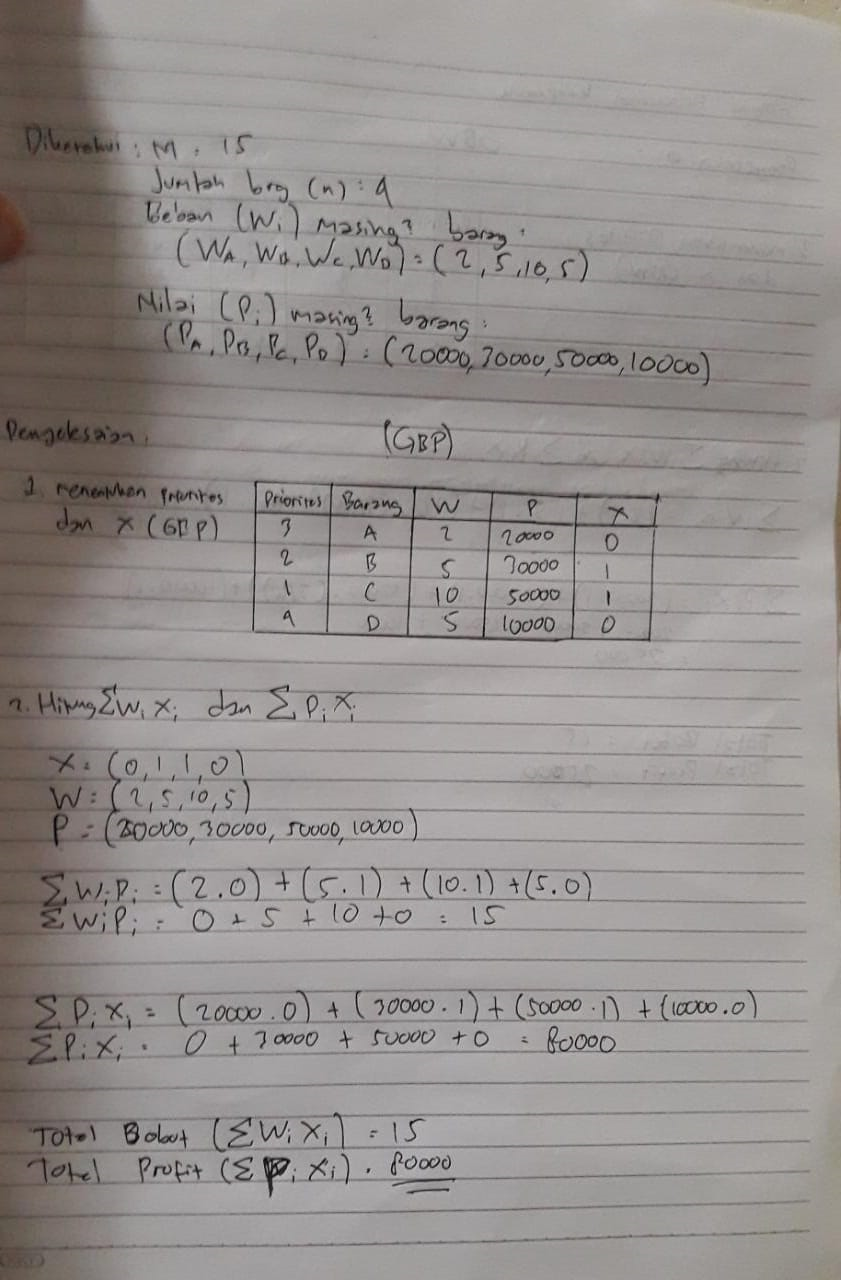 Diketahui : M = 15
Jumlah brg (n) : 4
Beban (Wi) masing² barang :
(WA, WB, WC, WD) = (2, 5, 10, 5)
Nilai (Pi) masing² barang :
(PA, PB, PC, PD) : (20000, 30000, 50000, 10000)
Pengelesaian :
(GBP)
1. menentukan prioritas
dan x (GBP)
Prioritas Barang W P X
3 A 2 20000 0
2 B 5 30000 1
1 C 10 50000 1
4 D 5 10000 0
2. Hitung ΣWi Xi dan Σ Pi Xi
X = (0, 1, 1, 0)
W = (2, 5, 10, 5)
P = (20000, 30000, 50000, 10000)
Σ Wi Pi = (2.0) + (5.1) + (10.1) + (5.0)
Σ Wi Pi = 0 + 5 + 10 + 0 = 15
Σ Pi Xi = (20000.0) + (30000.1) + (50000.1) + (10000.0)
Σ Pi Xi = 0 + 30000 + 50000 + 0 = 80000
Total Bobot (Σ Wi Xi) = 15
Total Profit (Σ Pi Xi) = 80000